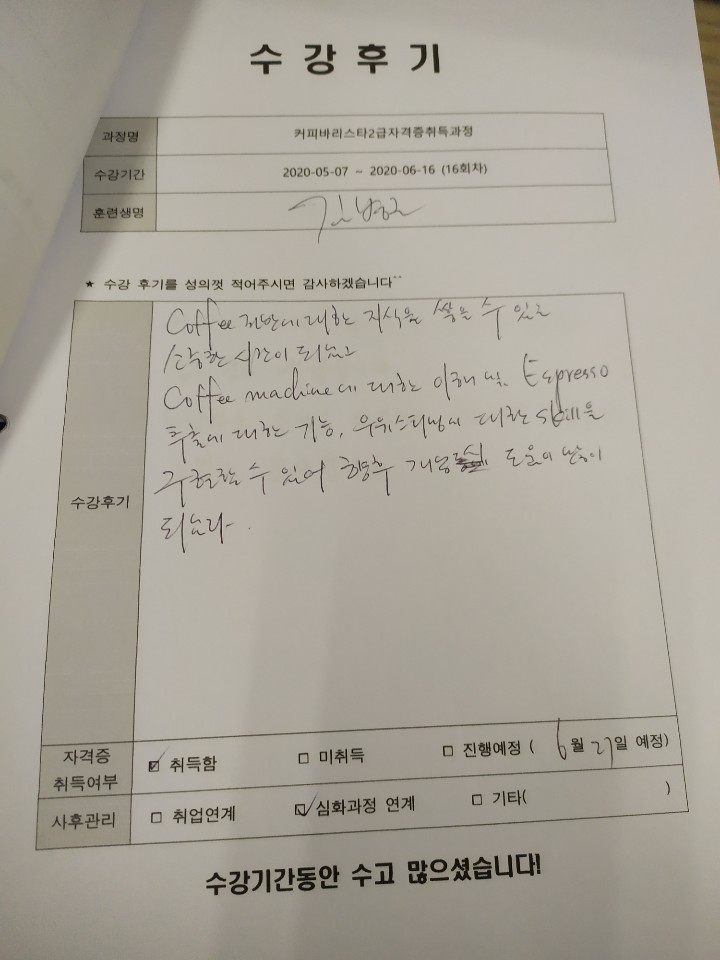 수 강 후 기
과정명 커피바리스타2급자격증취득과정
수강기간 2020-05-07 ~ 2020-06-16 (16회차)
훈련생명 김
★ 수강 후기를 성의껏 적어주시면 감사하겠습니다^^
수강후기
Coffee 전반에 대한 지식을 쌓을 수 있는
소중한 시간이 되었고
Coffee machine에 대한 이해 및 Espresso
추출에 대한 기능, 우유스티밍에 대한 skill을
구현할 수 있어 향후 개업시 도움이 많이
되었다.
자격증 취득여부 ☑ 취득함 □ 미취득 □ 진행예정 ( 6월 27일 예정)
사후관리 □ 취업연계 ☑ 심화과정 연계 □ 기타( )
수강기간동안 수고 많으셨습니다!